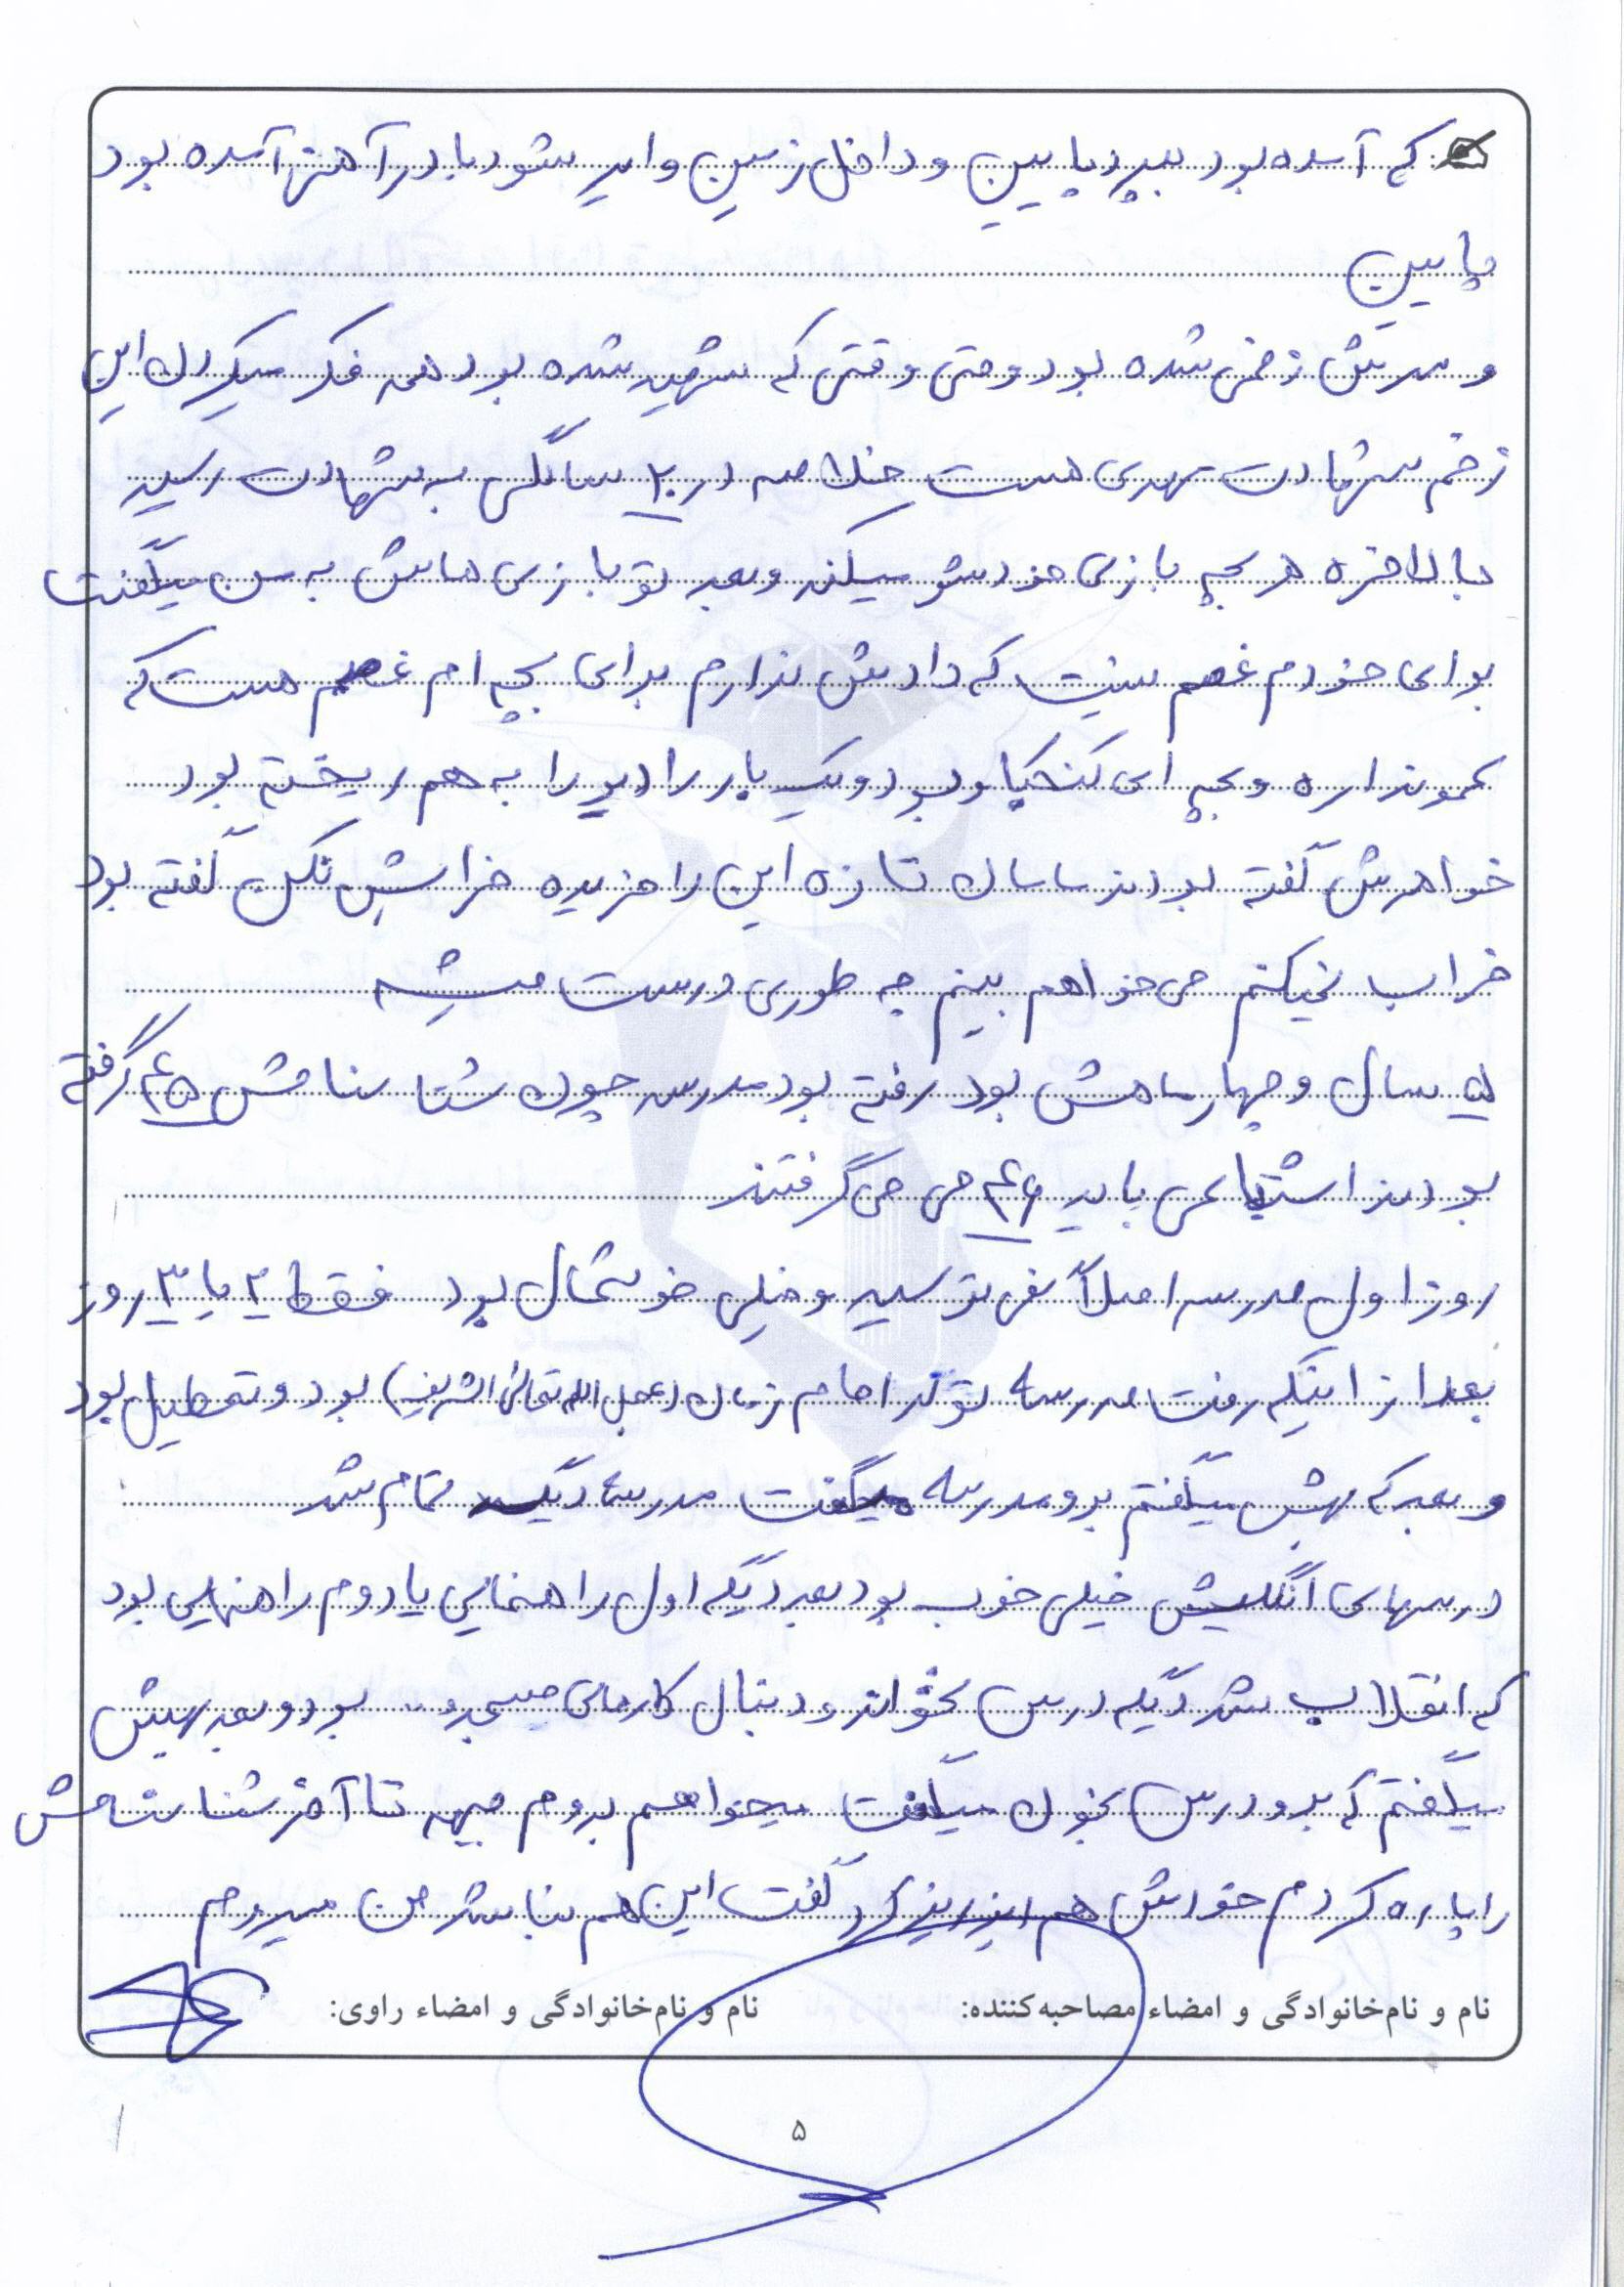 که آمده بود بپرد پایین و داخل زمین وایر میشود با در آهنها آمده بود
پایین
و سرش زخمی شده بود و حتی وقتی که شهید شده بود همه فکر میکردن این
زخم شهادت مهدی هست خلاصه در ۲۰ سالگی به شهادت رسید
بالاخره هر بچه بازی خودشو میکند و بعد تو بازی هایش به من میگفت
برای خودم غصم نیست که داداش ندارم برای بچه ام غصم هست که
عمو نداره و بچه ای کنجکاو بود و یک بار رادیو را به هم ریخته بود
خواهرش گفته بودند مامان تازه این را خریده خرابش نکن گفته بود
خراب نمیکنم می خواهم ببینم چه طوری درست میشه
۵ سال و چهار ماهش بود رفته بود مدرسه چون شناسنامش ۴۵ گرفته
بودند اشتباهی باید ۴۶ می می گرفتند
روز اول مدرسه اصلاً نمی ترسید و خیلی خوشحال بود فقط ۲ یا ۳ روز
بعد از اینکه رفت مدرسه تولد امام زمان (عجل الله تعالی الشریف) بود و تعطیل بود
و بعد که بهش میگفتم برو مدرسه میگفت مدرسه دیگه تمام شد
درسهای انگلیش خیلی خوب بود بعد دیگه اول راهنمایی یا دوم راهنمایی بود
که انقلاب شد دیگه درس نخواند و دنبال کارهای مسجد و.. بود و بعد بهش
میگفتم که برو درس بخون میگفت میخواهم بروم جبهه تا آخر شناسنامش
را پاره کردم خودش هم ریز ریز کرد گفت این هم نباشد من میروم
نام و نام‌خانوادگی و امضاء مصاحبه‌کننده: نام و نام‌خانوادگی و امضاء راوی:
۵